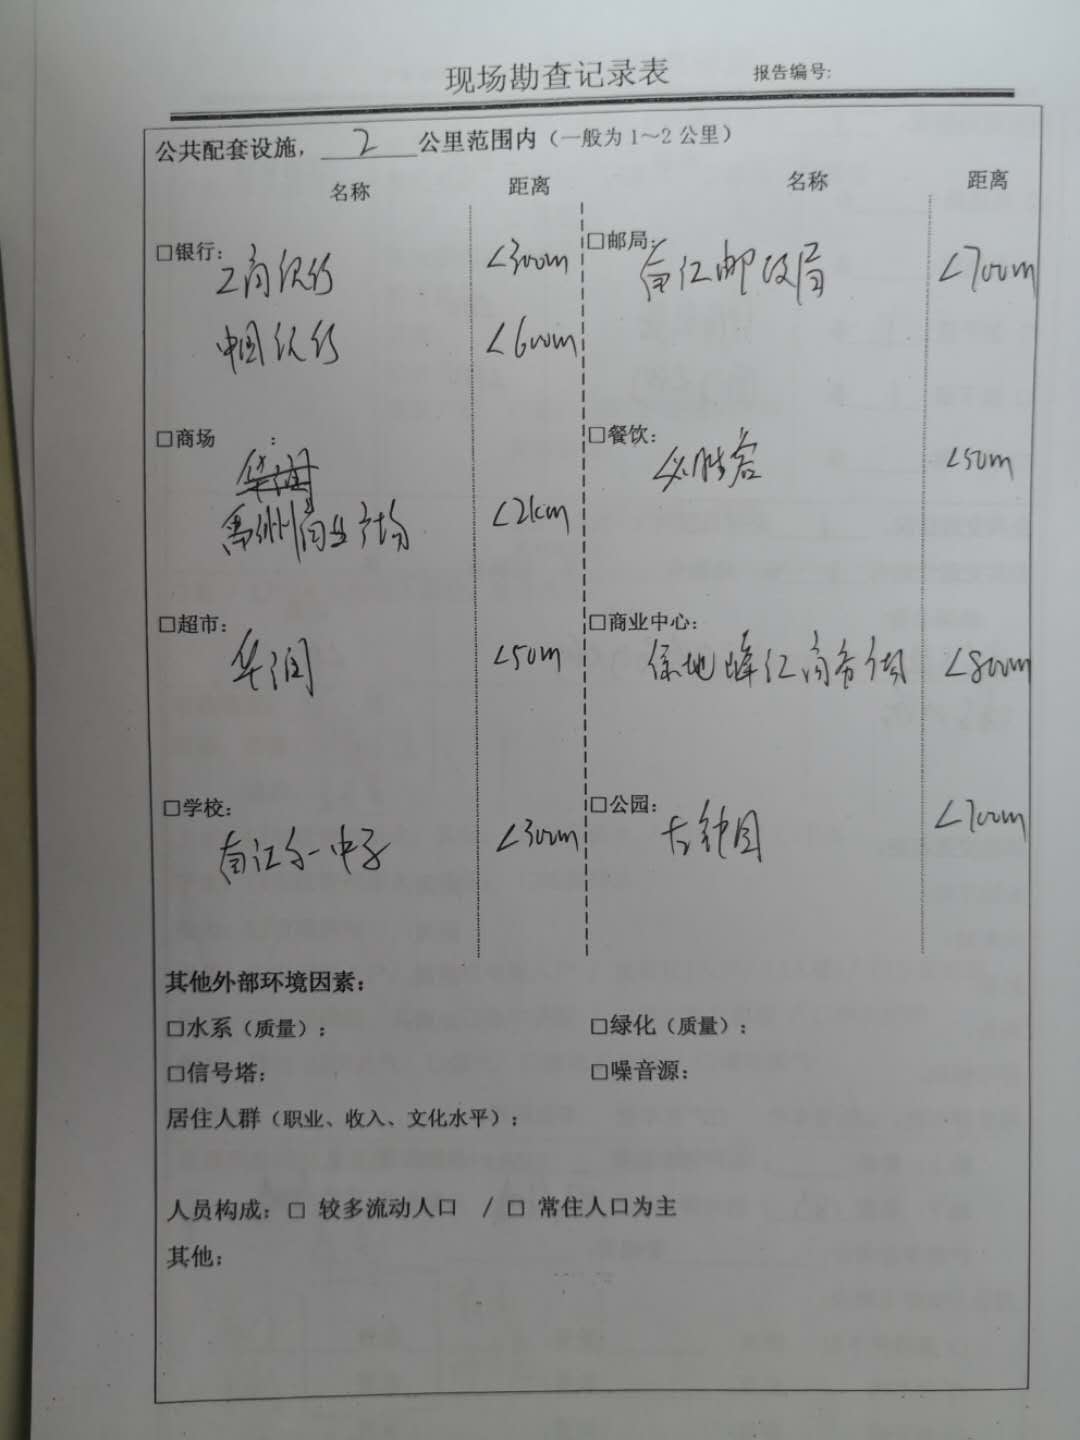 现场勘查记录表 报告编号:
公共配套设施, 2 公里范围内（一般为 1～2 公里）
名称 距离 名称 距离
□银行: 工商银行 <300m □邮局: 邮政局 <700m
中国银行 <600m
□商场 : 华润
禹洲商业广场 <2km
□餐饮: 必胜客 <50m
□超市: 华润 <50m □商业中心: 绿地滨江商务 <800m
□学校: 中学 <300m □公园: 古钟园 <700m
其他外部环境因素:
□水系（质量）: □绿化（质量）:
□信号塔: □噪音源:
居住人群（职业、收入、文化水平）:
人员构成: □ 较多流动人口 / □ 常住人口为主
其他: